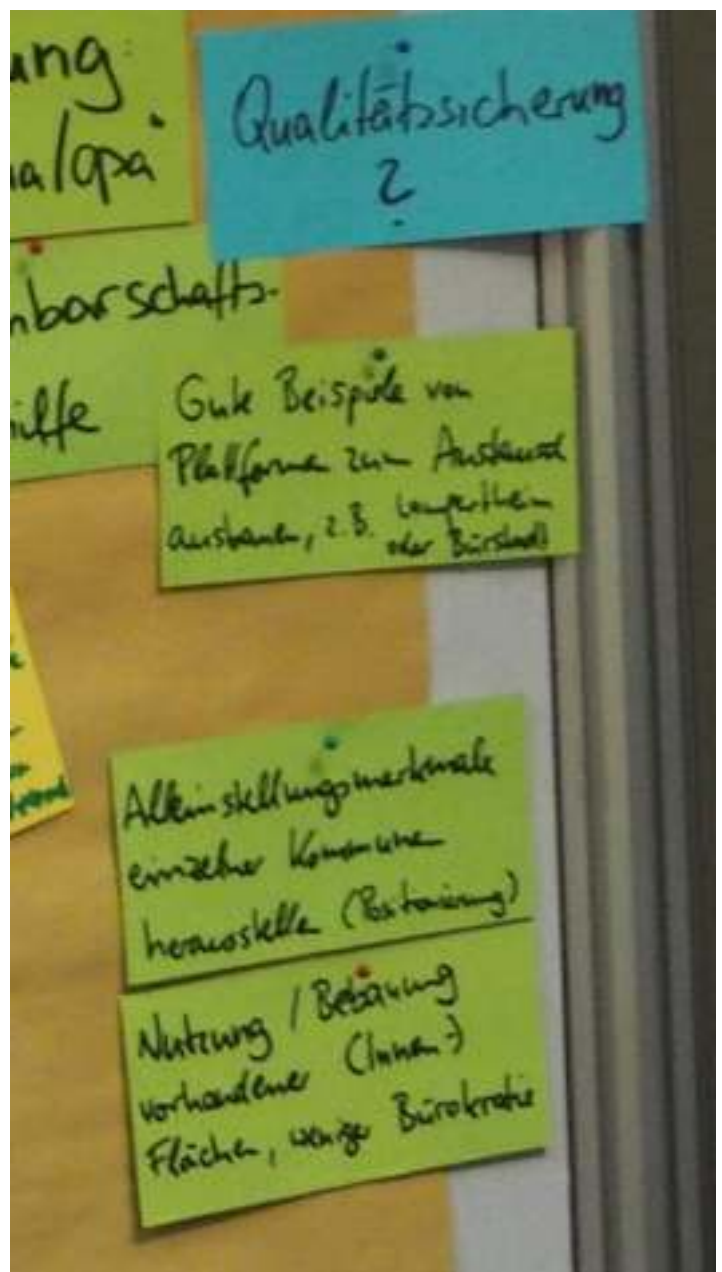 ung
a/opa
Qualitätssicherung
?
nbarschafts-
ilfe
Gute Beispiele von
Plattformen zum Austausch
ausbauen, z.B. Lampertheim
oder Bürstadt
Alleinstellungsmerkmale
einzelner Kommunen
herausstellen (Positionierung)
Nutzung / Bebauung
vorhandener (Innen-)
Flächen, weniger Bürokratie